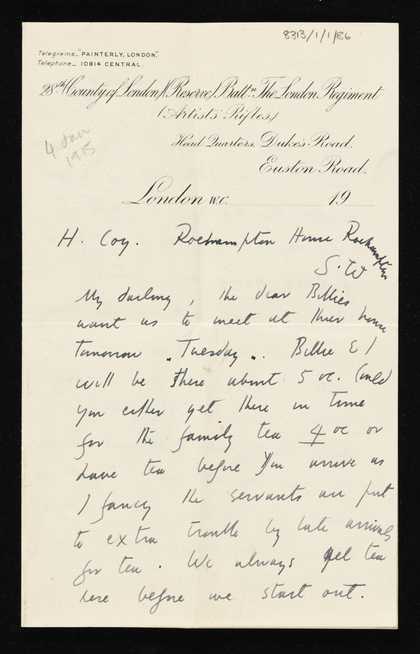 8313/1/1/86
Telegrams, "PAINTERLY, LONDON."
Telephone, 10814 CENTRAL.
28th (County of London) (Reserve) Battn. The London Regiment
(Artists' Rifles)
4 Jan
1915
Head Quarters, Duke's Road,
Euston Road.
London W.C. 19
H. Coy. Roehampton House Roehampton
S.W
My darling, the dear Billies
want us to meet at their house
tomorrow "Tuesday". Billie & I
will be there about 5 oc. Could
you either get there in time
for the family tea 4 oc or
have tea before you arrive as
I fancy the servants are put
to extra trouble by late arrivals
for tea. We always get tea
here before we start out.